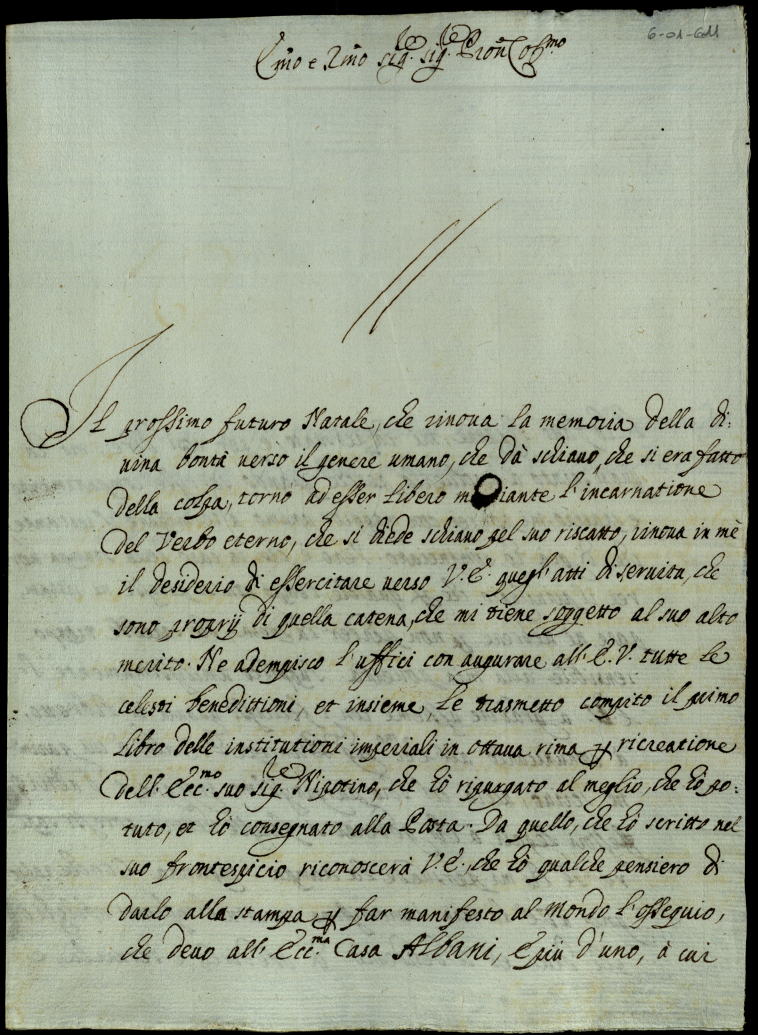 6-01-611
Em̃o e Rm̃o Sig.re Sig.re Pron̄ Col.mo
Il prossimo futuro Natale, che rinova la memoria della di:
vina bontà verso il genere umano, che dà schiavo, che si era fatto
della colpa, tornò ad esser libero mediante l'incarnatione
del Verbo eterno, che si diede schiavo pel suo riscatto, rinova in mè
il desiderio di essercitare verso V.E. quegl'atti di servitù, che
sono proprij di quella catena, che mi tiene soggetto al suo alto
merito. Ne adempisco l'uffici con augurare all'E.V. tutte le
celesti benedittioni, et insieme le trasmetto compito il primo
libro delle institutioni imperiali in ottava rima p ricreatione
dell'Ecc.mo suo Sig.re Nipotino, che hò ripurgato al meglio, che hò po:
tuto, et hò consegnato alla Posta. Da quello, che hò scritto nel
suo frontespicio riconoscerà V.E., che hò qualche pensiero di
darlo alla stampa p far manifesto al Mondo l'ossequio,
che devo all'Ecc.ma Casa Albani, E più d'uno, à cui